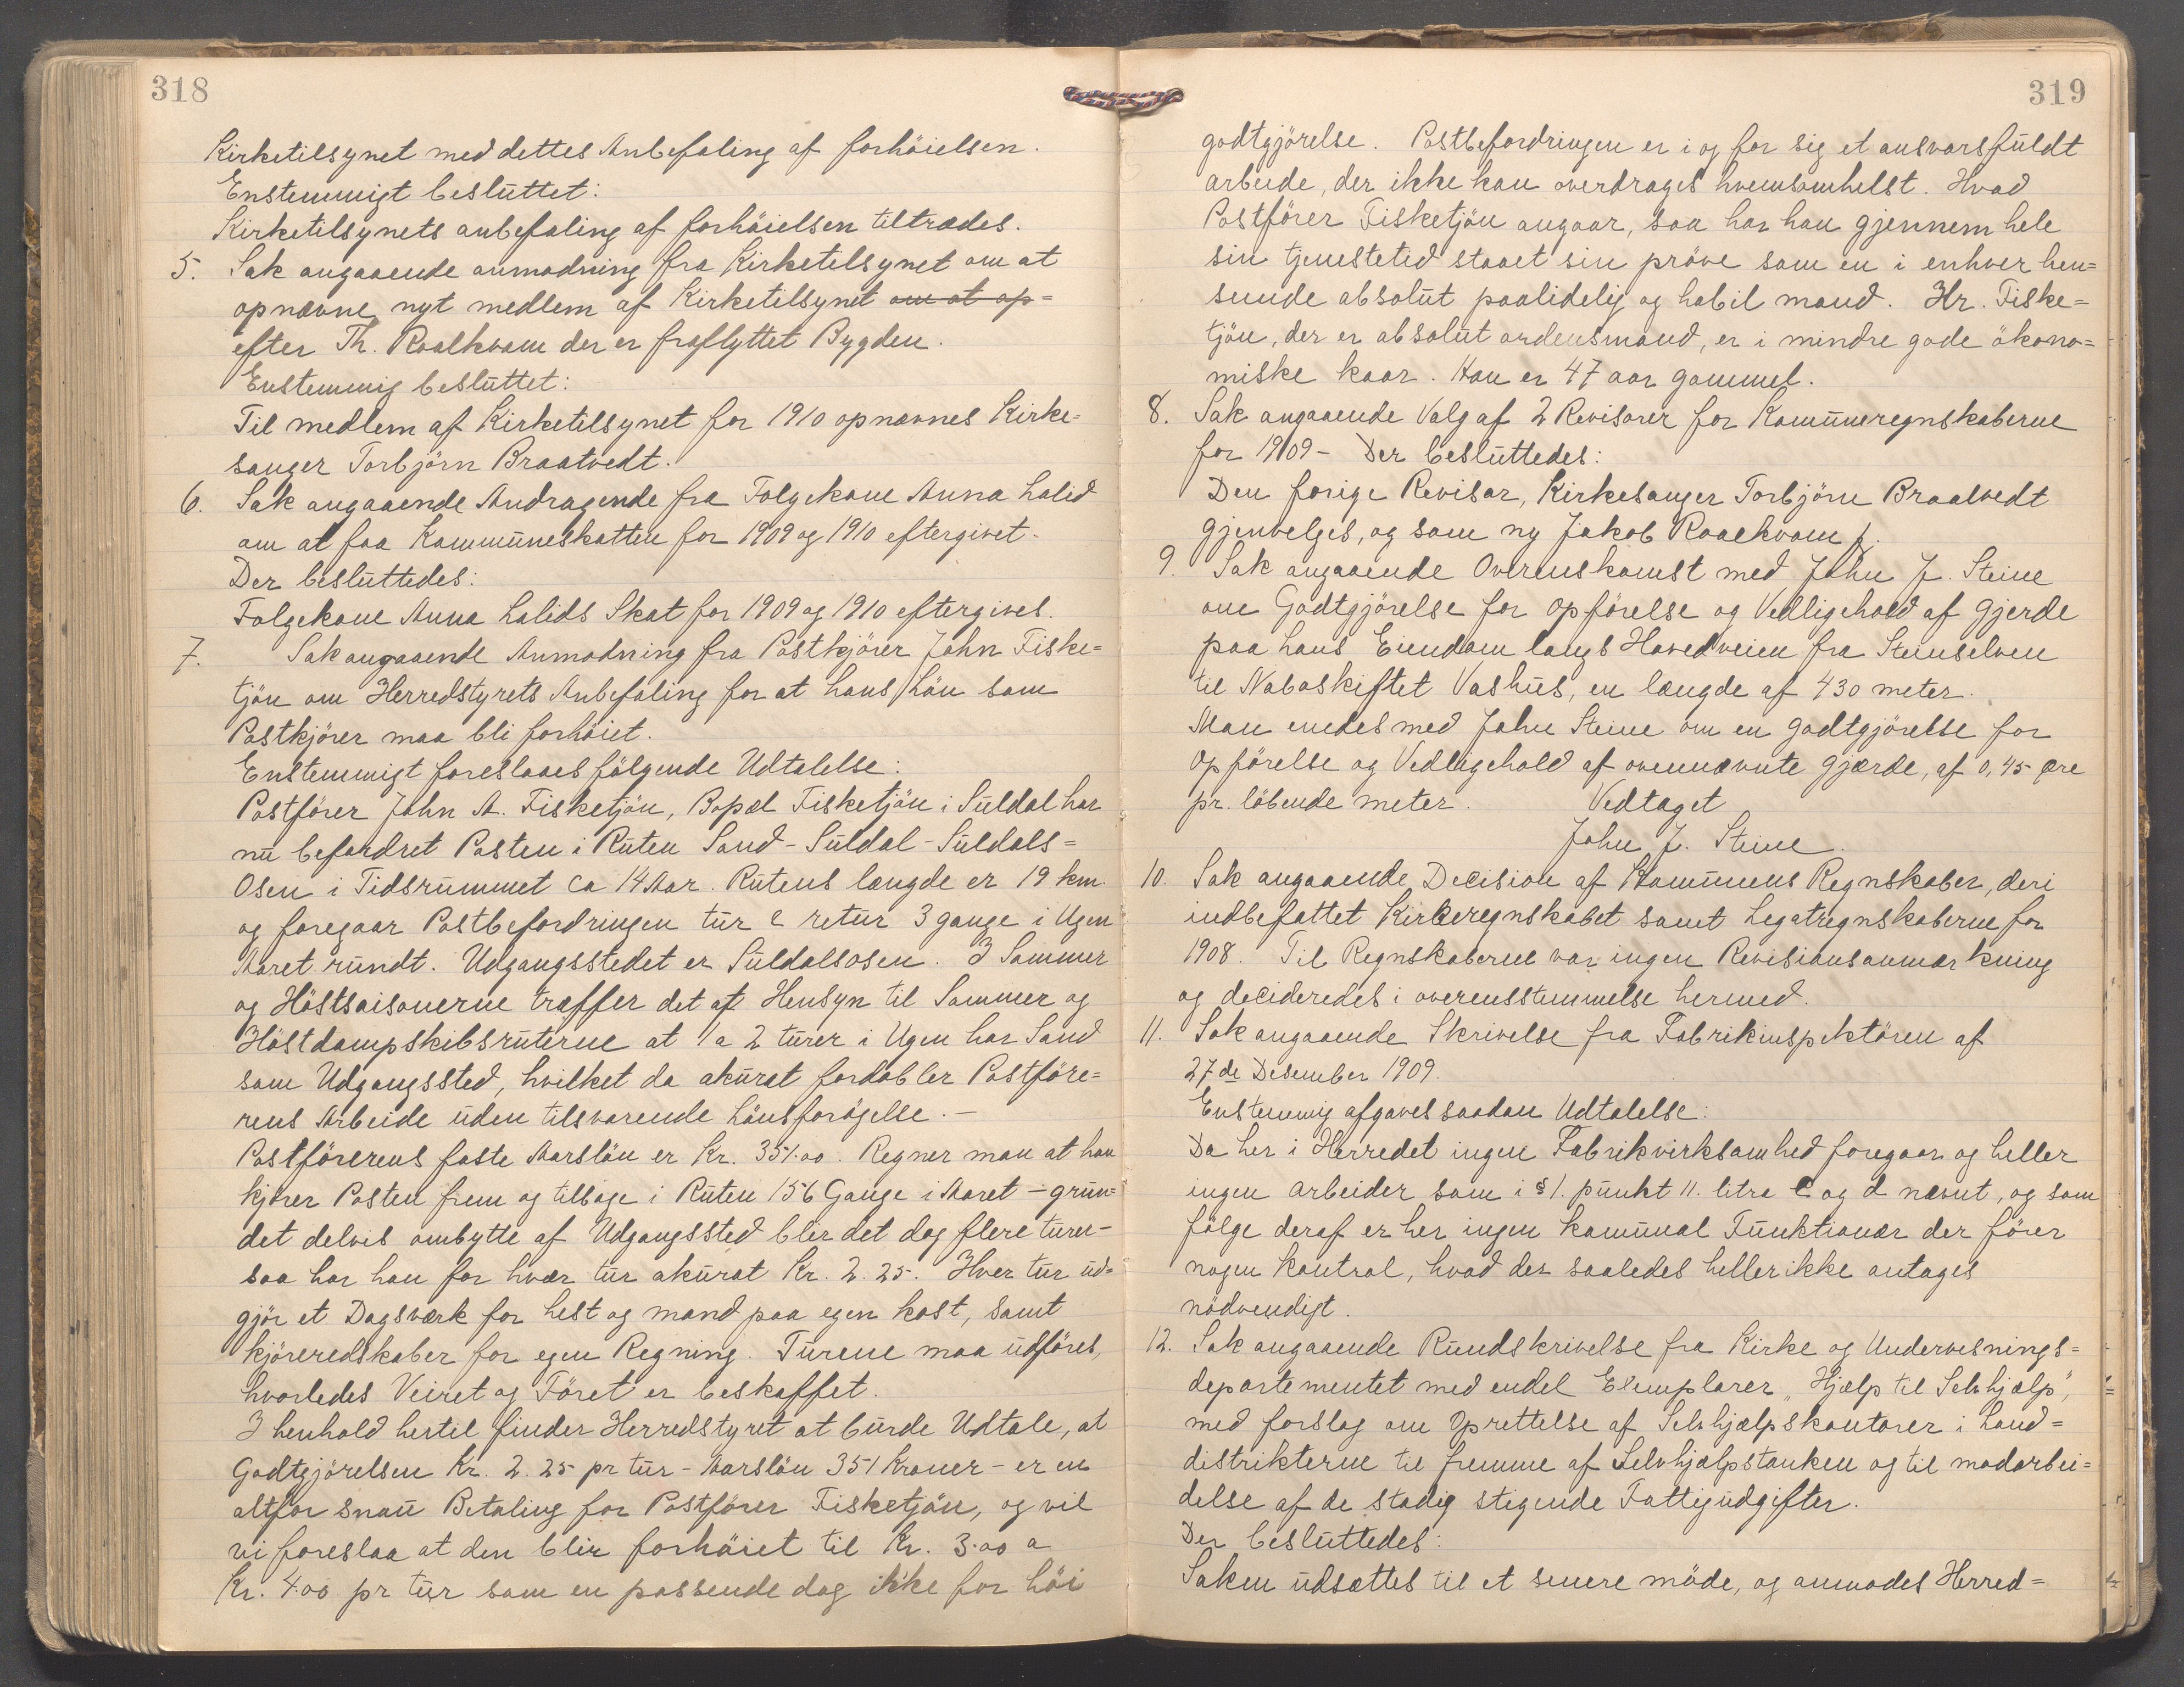 318
Kirketilsynet med dettes Anbefaling af forhöielsen.
Enstemmigt besluttet:
Kirketilsynets anbefaling af forhöielsen tiltrædes.
5. Sak angaaende anmodning fra Kirketilsynet om at
opnævne nyt medlem af Kirketilsynet om at op=
efter Th. Roalkvam der er fraflyttet Bygden.
Enstemmig besluttet:
Til medlem af Kirketilsynet for 1910 opnævnes Kirke-
sanger Torbjörn Braatvedt.
6. Sak angaaende Andragende fra Folgekone Anna Lalid
om at faa Kommuneskatten for 1909 og 1910 eftergivet.
Der besluttedes:
Folgekone Anna Lalids Skat for 1909 og 1910 eftergives.
7. Sak angaaende Anmodning fra Postkjörer John Fiske=
tjön om Herredstyrets Anbefaling for at hans Lön som
Postkjörer maa bli forhöiet.
Enstemmigt foreslaaes fölgende Udtalelse:
Postförer John A. Fisketjön, Bopæl Fisketjön i Suldal har
nu befordret Posten i Ruten Sand-Suldal-Suldals=
Osen i Tidsrummet ca 14 Aar. Rutens længde er 19 km.
og foregaar Postbefordringen tur & retur 3 gange i Ugen
Aaret rundt. Udgangsstedet er Suldalsosen. I Sommer
og Höstsaisonerne træffer det af Hensyn til Sommer og
Höstdampskibsruterne at 1 a 2 turer i Ugen har Sand
som Udgangssted, hvilket da akurat fordobler Postföre=
rens Arbeide uden tilsvarende Lönsforögelse.-
Postförerens faste Aarslön er Kr. 351.00. Regner man at han
kjörer Posten frem og tilbage i Ruten 156 Gange i Aaret - grun=
det delvis ombytte af Udgangssted blir det dog flere turer-
saa har han for hver tur akurat Kr. 2.25. Hver tur ud=
gjör et Dagsværk for hest og mand paa egen kost, samt
kjöreredskaber for egen Regning. Turene maa udföres,
hvorledes Veiret og Föret er beskaffet.
I henhold hertil finder Herredstyret at burde Udtale, at
Godtgjörelsen Kr. 2.25 pr tur - Aarslön 351 Kroner - er en
altfor snau Betaling for Postförer Fisketjön, og vil
vi foreslaa at den blir forhöiet til Kr. 3.00 a
Kr. 4.00 pr tur som en passende dog ikke for höi
319
godtgjörelse. Postbefordringen er i og for sig et ansvarsfuldt
arbeide, der ikke kan overdrages hvemsomhelst. Hvad
Postförer Fisketjön angaar, saa har han gjennem hele
sin tjenestetid staaet sin pröve som en i enhver hen=
sende absolut paalidelig og habil mand. Hr. Fiske=
tjön, der er absolut ordensmand, er i mindre gode ökono=
miske kaar. Han er 47 aar gammel.
8. Sak angaaende Valg af 2 Revisorer for Kommuneregnskaberne
for 1909- Der besluttedes:
Den forige Revisor, Kirkesanger Torbjörn Braatvedt
gjenvelges, og som ny Jakob Roalkvam j.
9. Sak angaaende Overenskomst med John J. Steine
om Godtgjörelse for opförelse og Vedligehold af gjerde
paa hans Eiendom langs Hovedveien fra Steinselven
til Naboskiftet Vashus, en længde af 430 meter.
Man enedes med John Steine om en godtgjörelse for
opförelse og Vedligehold af ovennævnte gjærde, af 0,45 øre
pr. löbende meter. Vedtaget
John J. Steine.
10. Sak angaaende Decision af Kommunens Regnskaber, deri
indbefattet Kirkeregnskabet samt Legatregnskaberne for
1908. Til Regnskaberne var ingen Revisionsanmærkning
og decideredes i overensstemmelse hermed.
11. Sak angaaende Skrivelse fra Fabrikinspektören af
27de Desember 1909.
Enstemmig afgaves saadan Udtalelse:
Da her i Herredet ingen Fabrikvirksomhed foregaar og heller
ingen arbeider som i § 1. punkt 11. litra c og d nævnt, og som
fölge deraf er her ingen komunal Funktionær der förer
nogen kontrol, hvad der saaledes heller ikke antages
nödvendigt.
12. Sak angaaende Rundskrivelse fra Kirke og Undervisnings=
departementet med endel Exemplarer „Hjælp til Selvhjælp",
med forslag om Oprettelse af Selvhjælpskontorer i Land=
distrikterne til fremme af Selvhjælpstanken og til modarbei=
delse af de stadig stigende Fattigudgifter.
Der besluttedes:
Saken udsættes til et senere möde, og anmodes Herred=